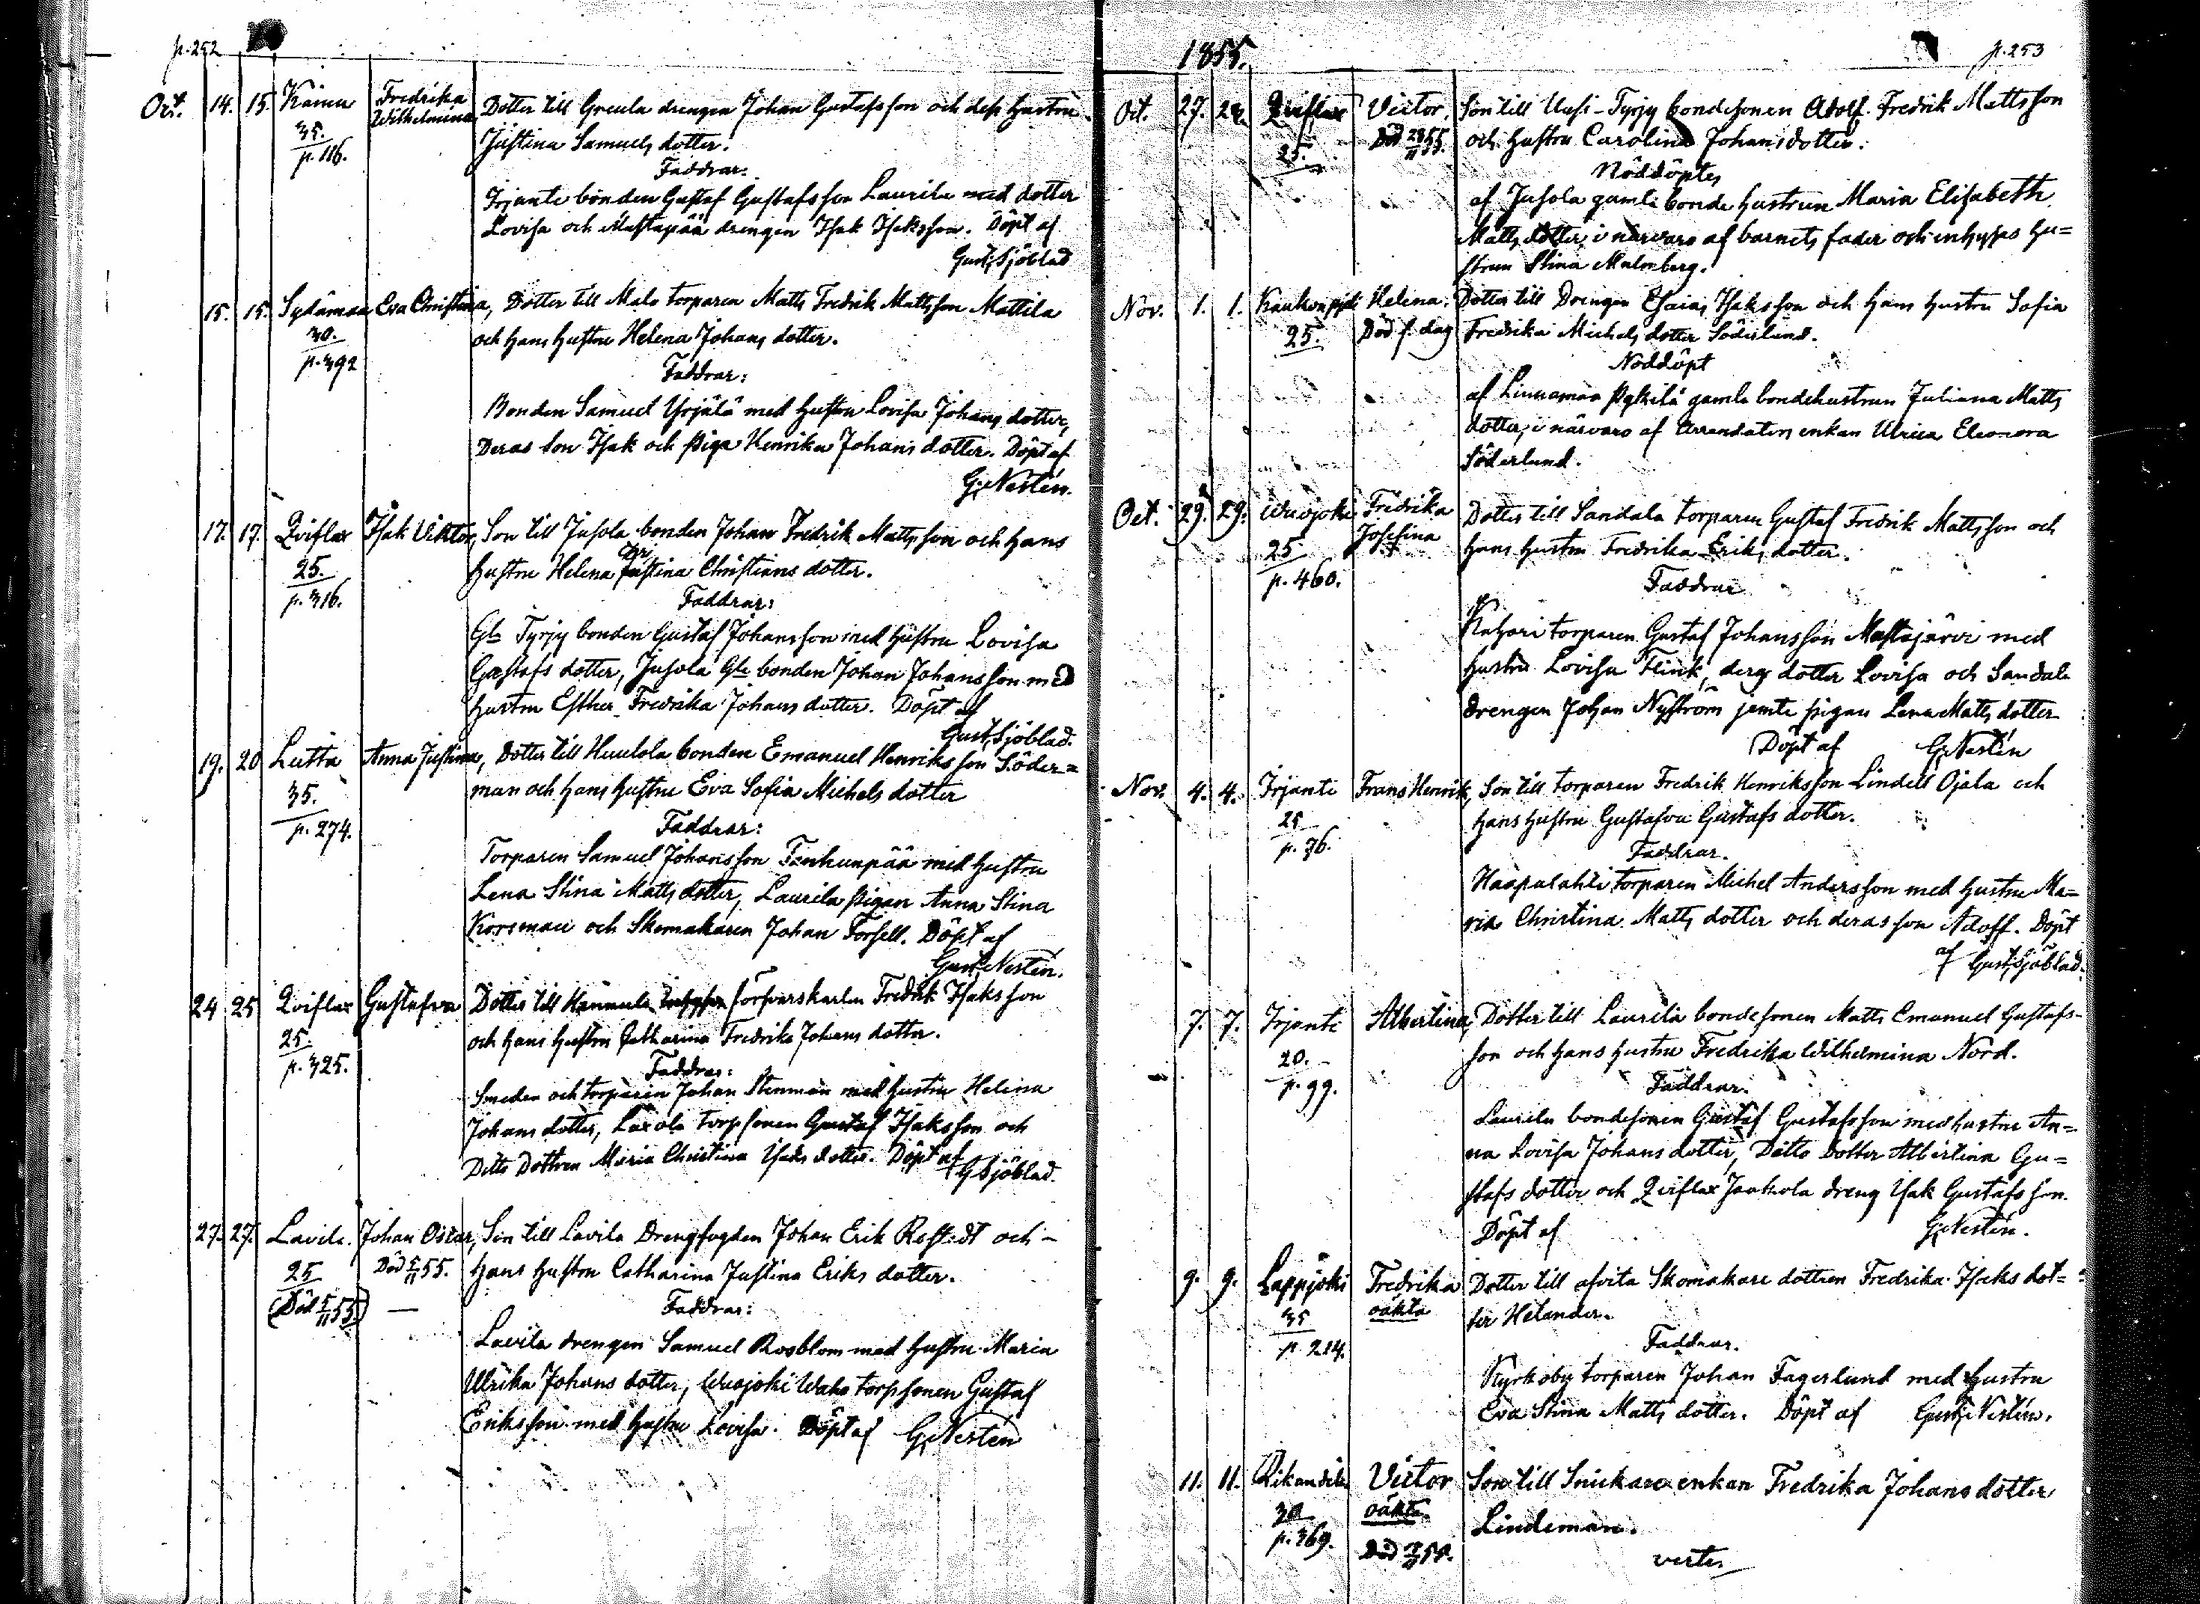 p. 252
Oct. 14. 15. Kainu Fredrika Wilhelmina Dotter till Greula drengen Johan Gustafsson och dess hustru
35. Justina Samuels dotter.
p. 116. Faddrar:
Irjante bonden Gustaf Gustafsson Laurila med dotter
Lovisa och Mustapää drengen Isak Isaksson. Döpt af
Gust. Sjöblad
15. 15. Sydänmaa Eva Christina, Dotter till Malo torparen Matts Fredrik Mattsson Mattila
30. och hans hustru Helena Johans dotter.
p. 392 Faddrar:
Bonden Samuel Yrjälä med hustru Lovisa Johans dotter,
Deras son Isak och piga Henrika Johans dotter. Döpt af
G. Nestén.
17. 17. Qviflax Isak Viktor, Son till Jusola bonden Johan Fredrik Matts son och hans
25. hustru Helena Christians dotter.
p. 316. Faddrar:
Gla Tyrjy bonden Gustaf Johansson med hustru Lovisa
Gustafs dotter, Jusola Gla bonden Johan Johansson med
hustru Esther Fredrika Johans dotter. Döpt af
Gust. Sjöblad.
19. 20 Lutta Anna Justina, Dotter till Huulola bonden Emanuel Henriksson Söder=
35. man och hans hustru Eva Sofia Michels dotter
p. 274. Faddrar:
Torparen Samuel Johansson Tanhuanpää med hustru
Lena Stina Matts dotter, Laurila pigan Anna Stina
Korsman och Skomakaren Johan Forsell. Döpt af
Gust. Nestén.
24 25 Qviflax Gustafva Dotter till försvarskarlen Fredrik Isaksson
25. och hans hustru Catharina Fredrika Johans dotter.
p. 325. Faddrar:
Smeden och torparen Johan Stenman med hustru Helena
Johans dotter, torpsonen Gustaf Isaksson och
Ditto Dottren Maria Christina Isaks dotter. Döpt af
G Sjöblad.
27. 27. Lavila. Johan Oscar, Son till Lavila Drengfogden Johan Erik Rostedt och –
25 Död 5/11 55. hans hustru Catharina Justina Eriks dotter.
(Död 5/11 55) — Faddrar:
Lavila drengen Samuel Rosblom med hustru Maria
Ulrika Johans dotter, Wuojoki Waho torpsonen Gustaf
Eriksson med hustru Lovisa. Döpt af G. Nestén
1855. p. 253
Oct. 27. 28. Qviflax Victor, Son till Uusi-Tyrjy bondesonen Adolf Fredrik Mattsson
25. Död 55. och hustru Carolina Johansdotter.
Nöddöptes
af Jusola gamla bonde hustrun Maria Elisabeth
Matts dotter, i närvaro af barnets fader och inhyses hu=
strun Stina Malmberg.
Nov. 1. 1. Helena. Dotter till Drengen Esaias Isaksson och hans hustru Sofia
25. Död s. dag Fredrika Michels dotter Söderlund.
Nöddöpt
af Linnamaa Pykilä gamla bondehustrun Juliana Matts
dotter, i närvaro af Arrendators enkan Ulrica Eleonora
Söderlund.
Oct. 29. 29. Wuojoki Fredrika Josefina Dotter till Sandala torparen Gustaf Fredrik Mattsson och
25 hans hustru Fredrika Eriks dotter.
p. 460. Faddrar
torparen Gustaf Johansson Mustajärvi med
hustru Lovisa Flink, deras dotter Lovisa och Sandala
drengen Johan Nyström jemte pigan Lena Matts dotter
Döpt af G. Nestén
Nov. 4. 4. Irjante Frans Henrik, Son till torparen Fredrik Henriksson Lindell Ojala och
25 hans hustru Gustafva Gustafs dotter.
p. 76. Faddrar.
Haapalahti torparen Michel Andersson med hustru Ma=
ria Christina Matts dotter och deras son Adolf. Döpt
af Gust. Sjöblad.
7. 7. Irjante Albertina, Dotter till Laurila bondesonen Matts Emanuel Gustafs-
20. son och hans hustru Fredrika Wilhelmina Nord.
p. 99. Faddrar.
Laurila bondesonen Gustaf Gustafsson med hustru An=
na Lovisa Johans dotter, Ditto Dotter Albertina Gu=
stafs dotter och Qviflax Jaakola dreng Isak Gustafsson.
Döpt af G. Nestén.
9. 9. Lappjoki Fredrika Dotter till afvita Skomakare dottren Fredrika Isaks dot=
35 oäkta ter Helander.
p. 214. Faddrar.
Kyrkoby torparen Johan Fagerlund med hustru
Eva Stina Matts dotter. Döpt af Gust. Nestén.
11. 11. Rikandila Victor Son till Snickare enkan Fredrika Johans dotter
30 oäkta. Lindeman.
p. 369. Död
vertes